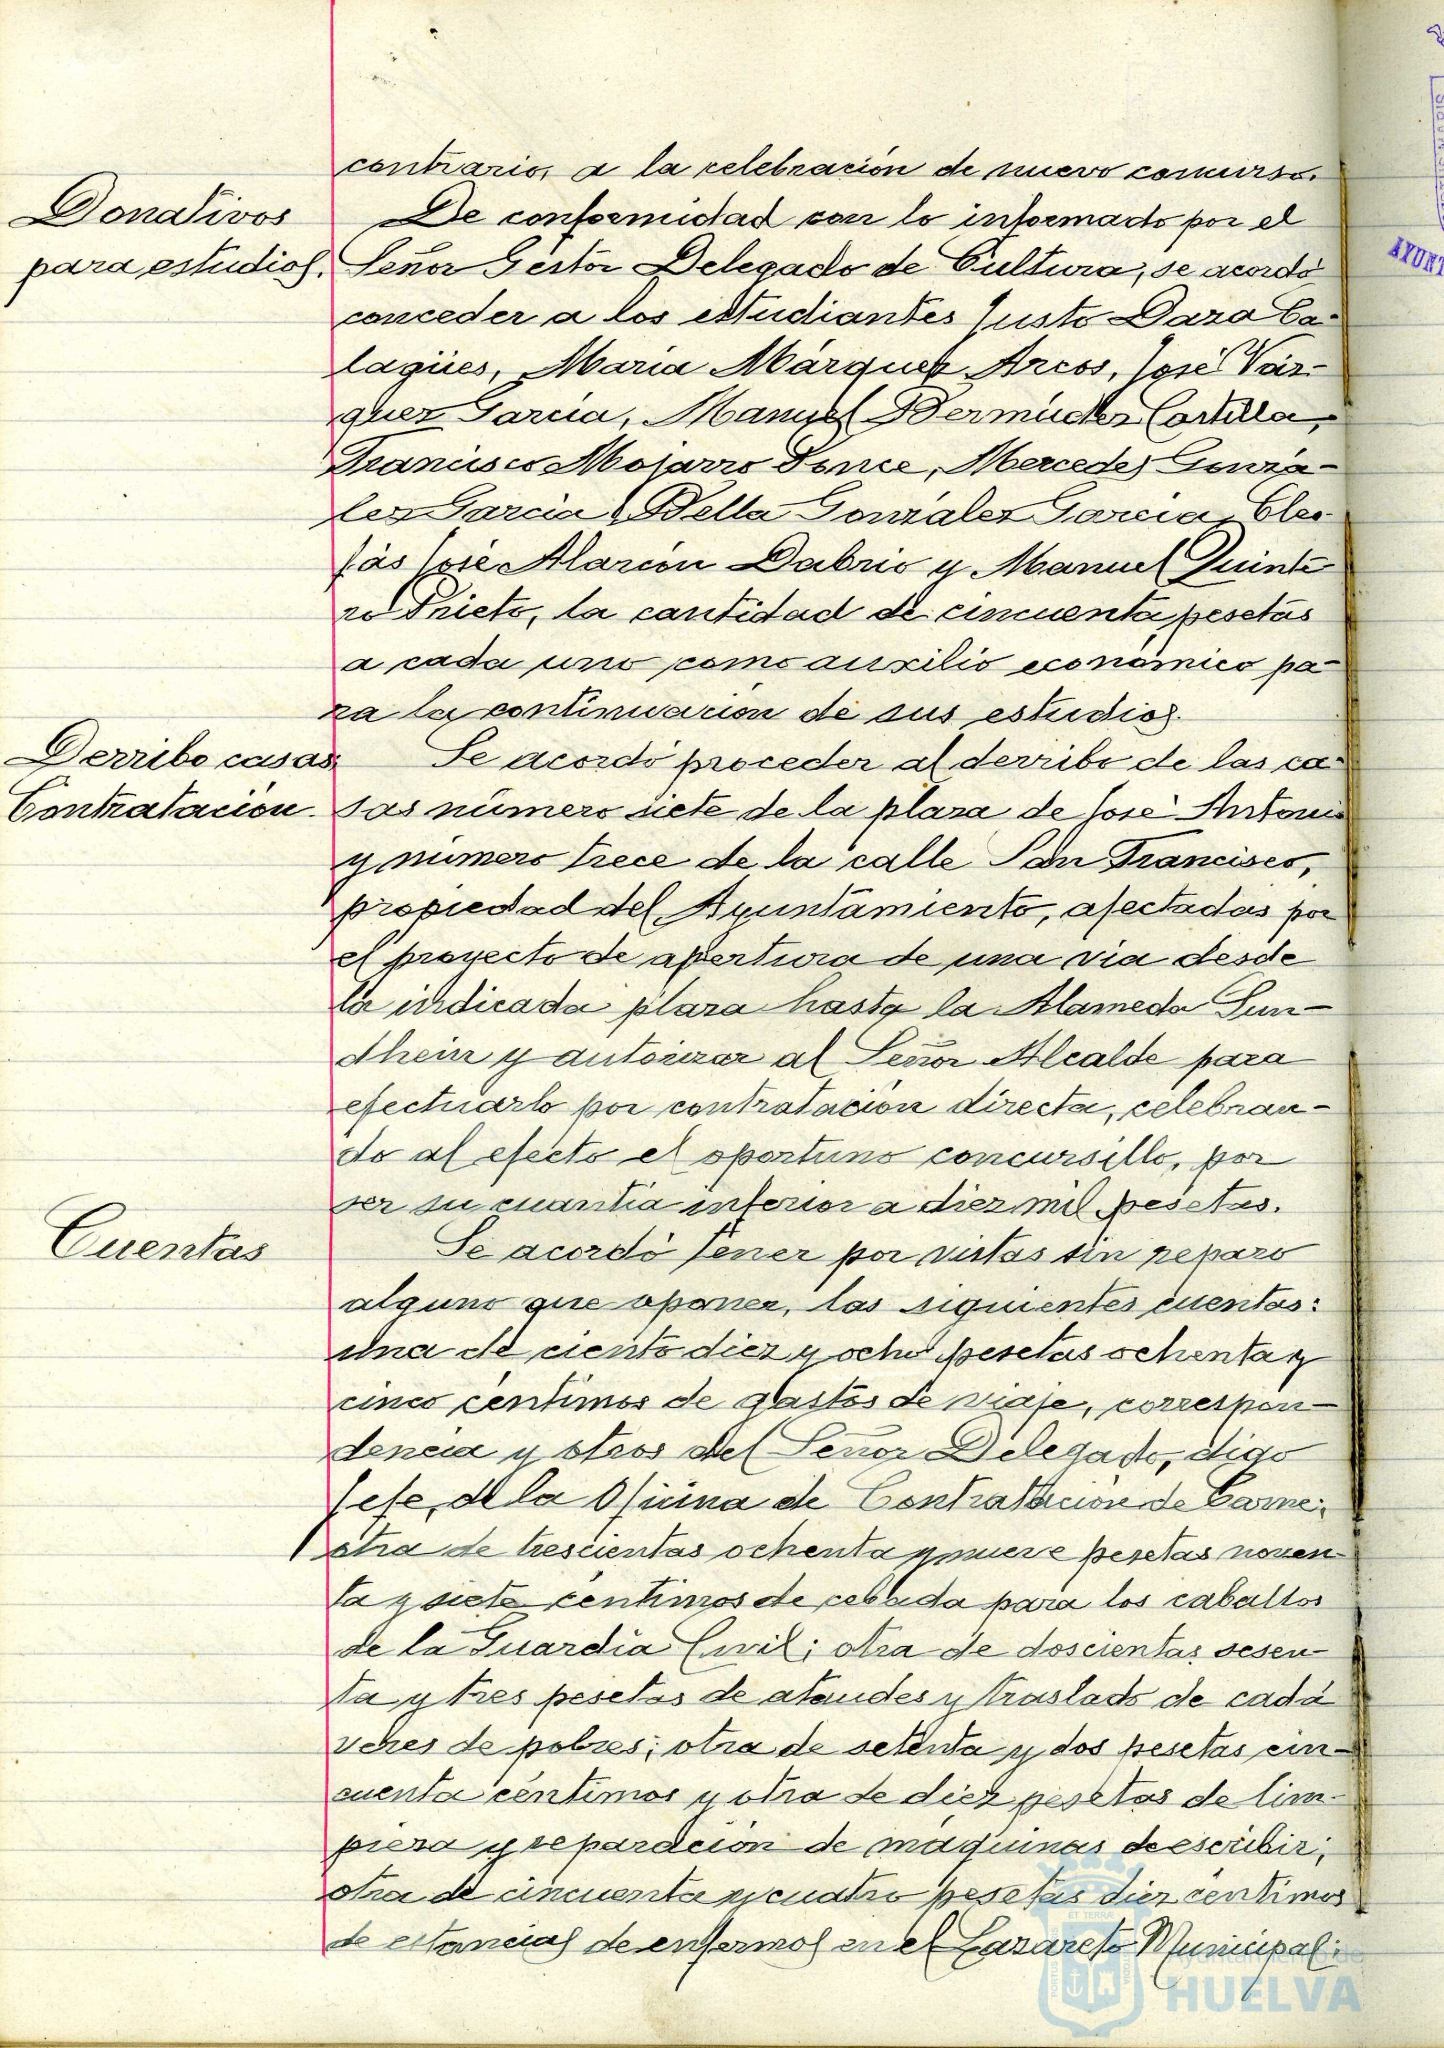 contrario, a la celebración de nuevo concurso.
Donativos
para estudios.
De conformidad con lo informado por el
Señor Gestor Delegado de Cultura, se acordó
conceder a los estudiantes Justo Daza Ca-
lagües, Maria Márquez Arcos, José Váz-
quez Garcia, Manuel Bermúdez Castilla,
Francisco Mojarro Ponce, Mercedes Gonzá-
lez Garcia, Bella González Garcia, Cleo-
fás José Alarcón Dabrio y Manuel Quinte
ro Prieto, la cantidad de cincuenta pesetas
a cada uno como auxilio económico pa-
ra la continuación de sus estudios.
Derribo casas
Contratación.
Se acordó proceder al derribo de las ca-
sas número siete de la plaza de José Antonio
y número trece de la calle San Francisco,
propiedad del Ayuntamiento, afectadas por
el proyecto de apertura de una via desde
la indicada plaza hasta la Alameda Sun-
dhein y autorizar al Señor Alcalde para
efectuarlo por contratación directa, celebran-
do al efecto el oportuno concursillo, por
ser su cuantia inferior a diez mil pesetas.
Cuentas
Se acordó tener por vistas sin reparo
alguno que oponer, las siguientes cuentas:
una de ciento diez y ocho pesetas ochenta y
cinco centimos de gastos de viaje, correspon-
dencia y otros del Señor Delegado, digo
Jefe, de la Oficina de Contratación de Carne;
otra de trescientas ochenta y nueve pesetas noven-
ta y siete centimos de cebada para los caballos
de la Guardia Civil; otra de doscientas sesen-
ta y tres pesetas de ataudes y traslado de cadá
veres de pobres; otra de setenta y dos pesetas cin-
cuenta céntimos y otra de diez pesetas de lim-
pieza y reparación de máquinas de escribir;
otra de cincuenta y cuatro pesetas diez centimos
de estancias de enfermos en el Lazareto Municipal;
AYUNT
Ayuntamiento de
HUELVA